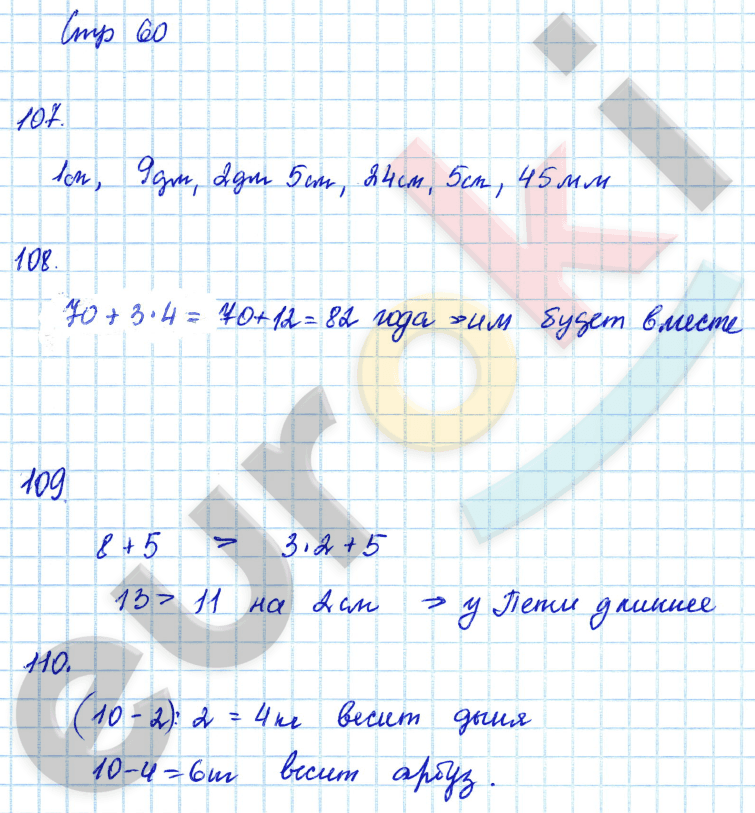 Стр 60
107.
1см, 9дм, 2дм 5см, 24см, 5см, 45мм
108.
70 + 3·4 = 70+12 = 82 года → им будет вместе
109.
8 + 5 > 3·2 + 5
13 > 11 на 2см → у Пети длиннее
110.
(10-2):2 = 4кг весит дыня
10-4=6кг весит арбуз.
euroki